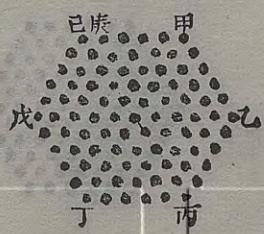 己庚 甲
戊 乙
丁 丙